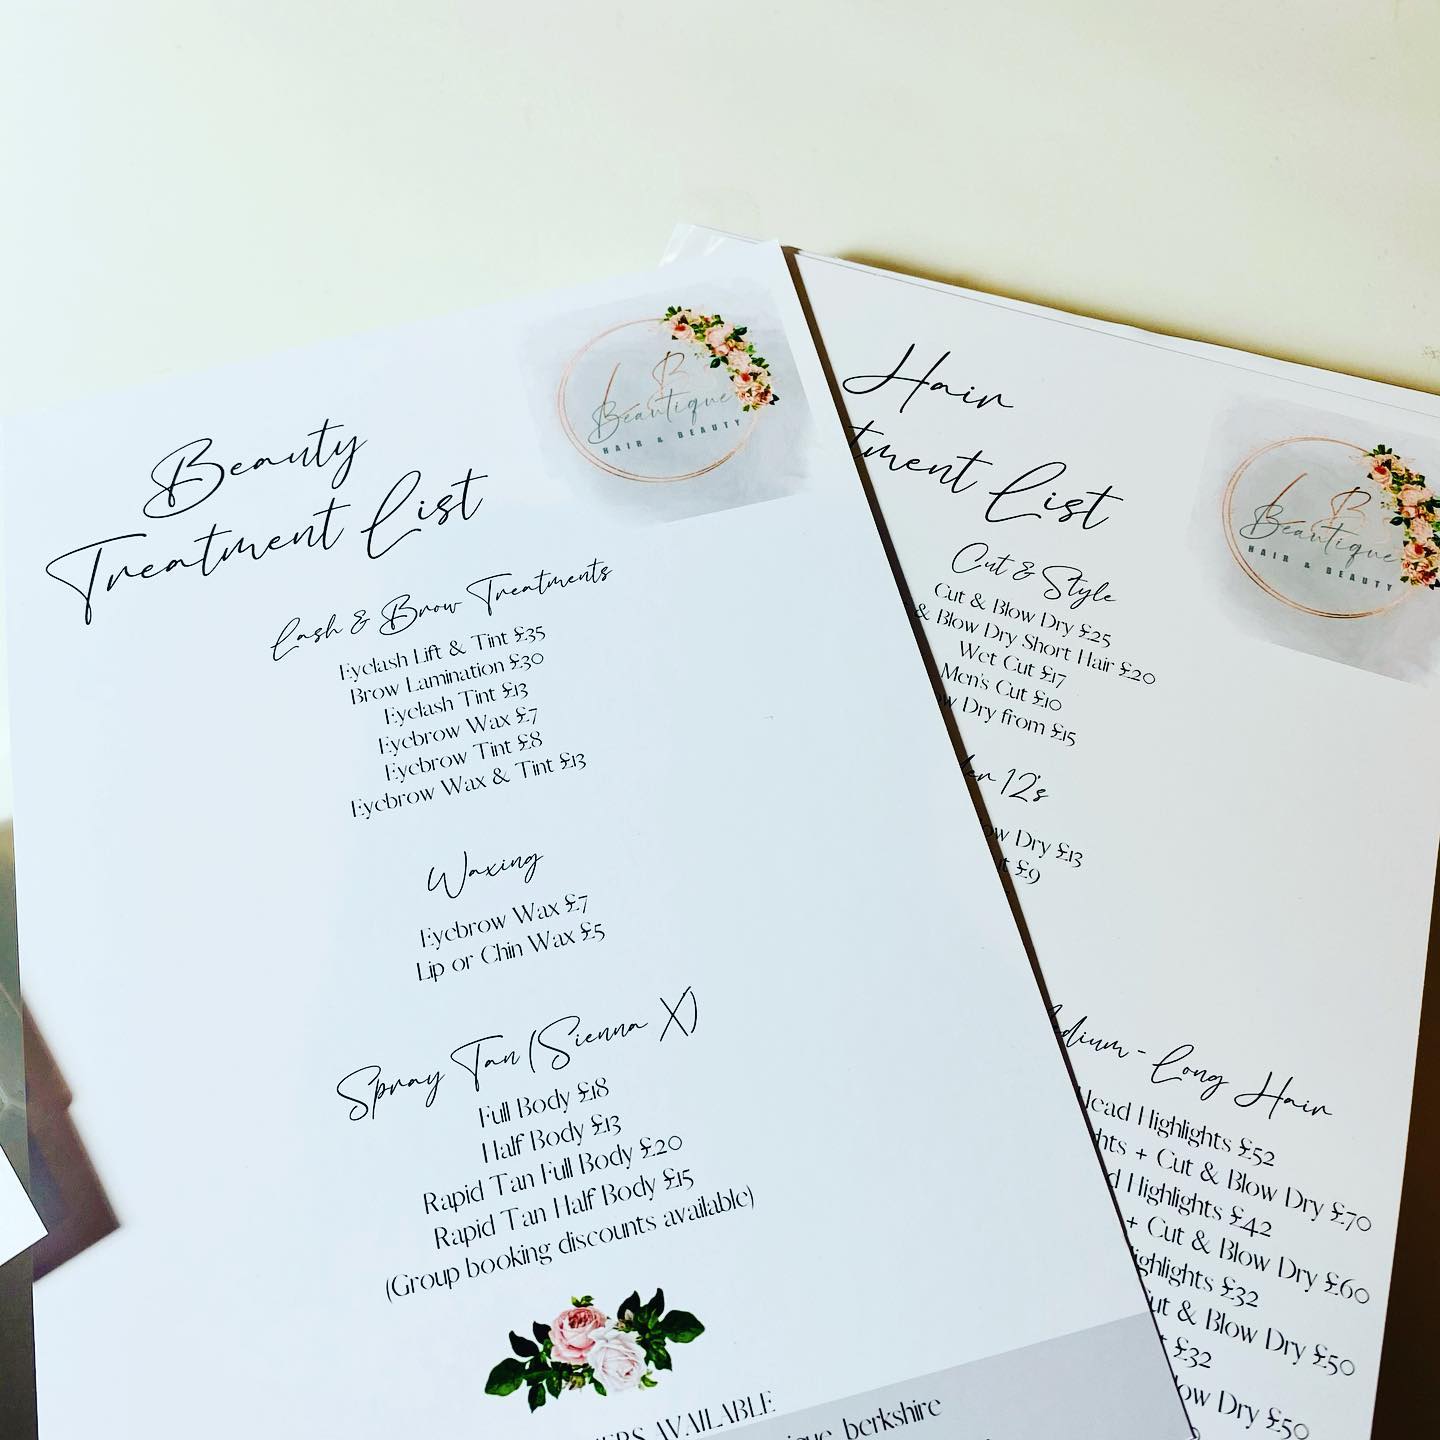 Beauty
Treatment List
B
Beautique
HAIR & BEAUTY
Lash & Brow Treatments
Eyelash Lift & Tint £35
Brow Lamination £30
Eyelash Tint £13
Eyebrow Wax £7
Eyebrow Tint £8
Eyebrow Wax & Tint £13
Waxing
Eyebrow Wax £7
Lip or Chin Wax £5
Spray Tan (Sienna X)
Full Body £18
Half Body £13
Rapid Tan Full Body £20
Rapid Tan Half Body £15
(Group booking discounts available)
AVAILABLE
berkshire
Hair
tment List
B
Beautique
HAIR & BEAUTY
Cut & Style
Cut & Blow Dry £25
& Blow Dry Short Hair £20
Wet Cut £17
Men's Cut £10
Dry from £15
12's
Dry £13
£9
Long Hair
Highlights £52
+ Cut & Blow Dry £70
Highlights £42
+ Cut & Blow Dry £60
£32
& Blow Dry £50
£32
Dry £50